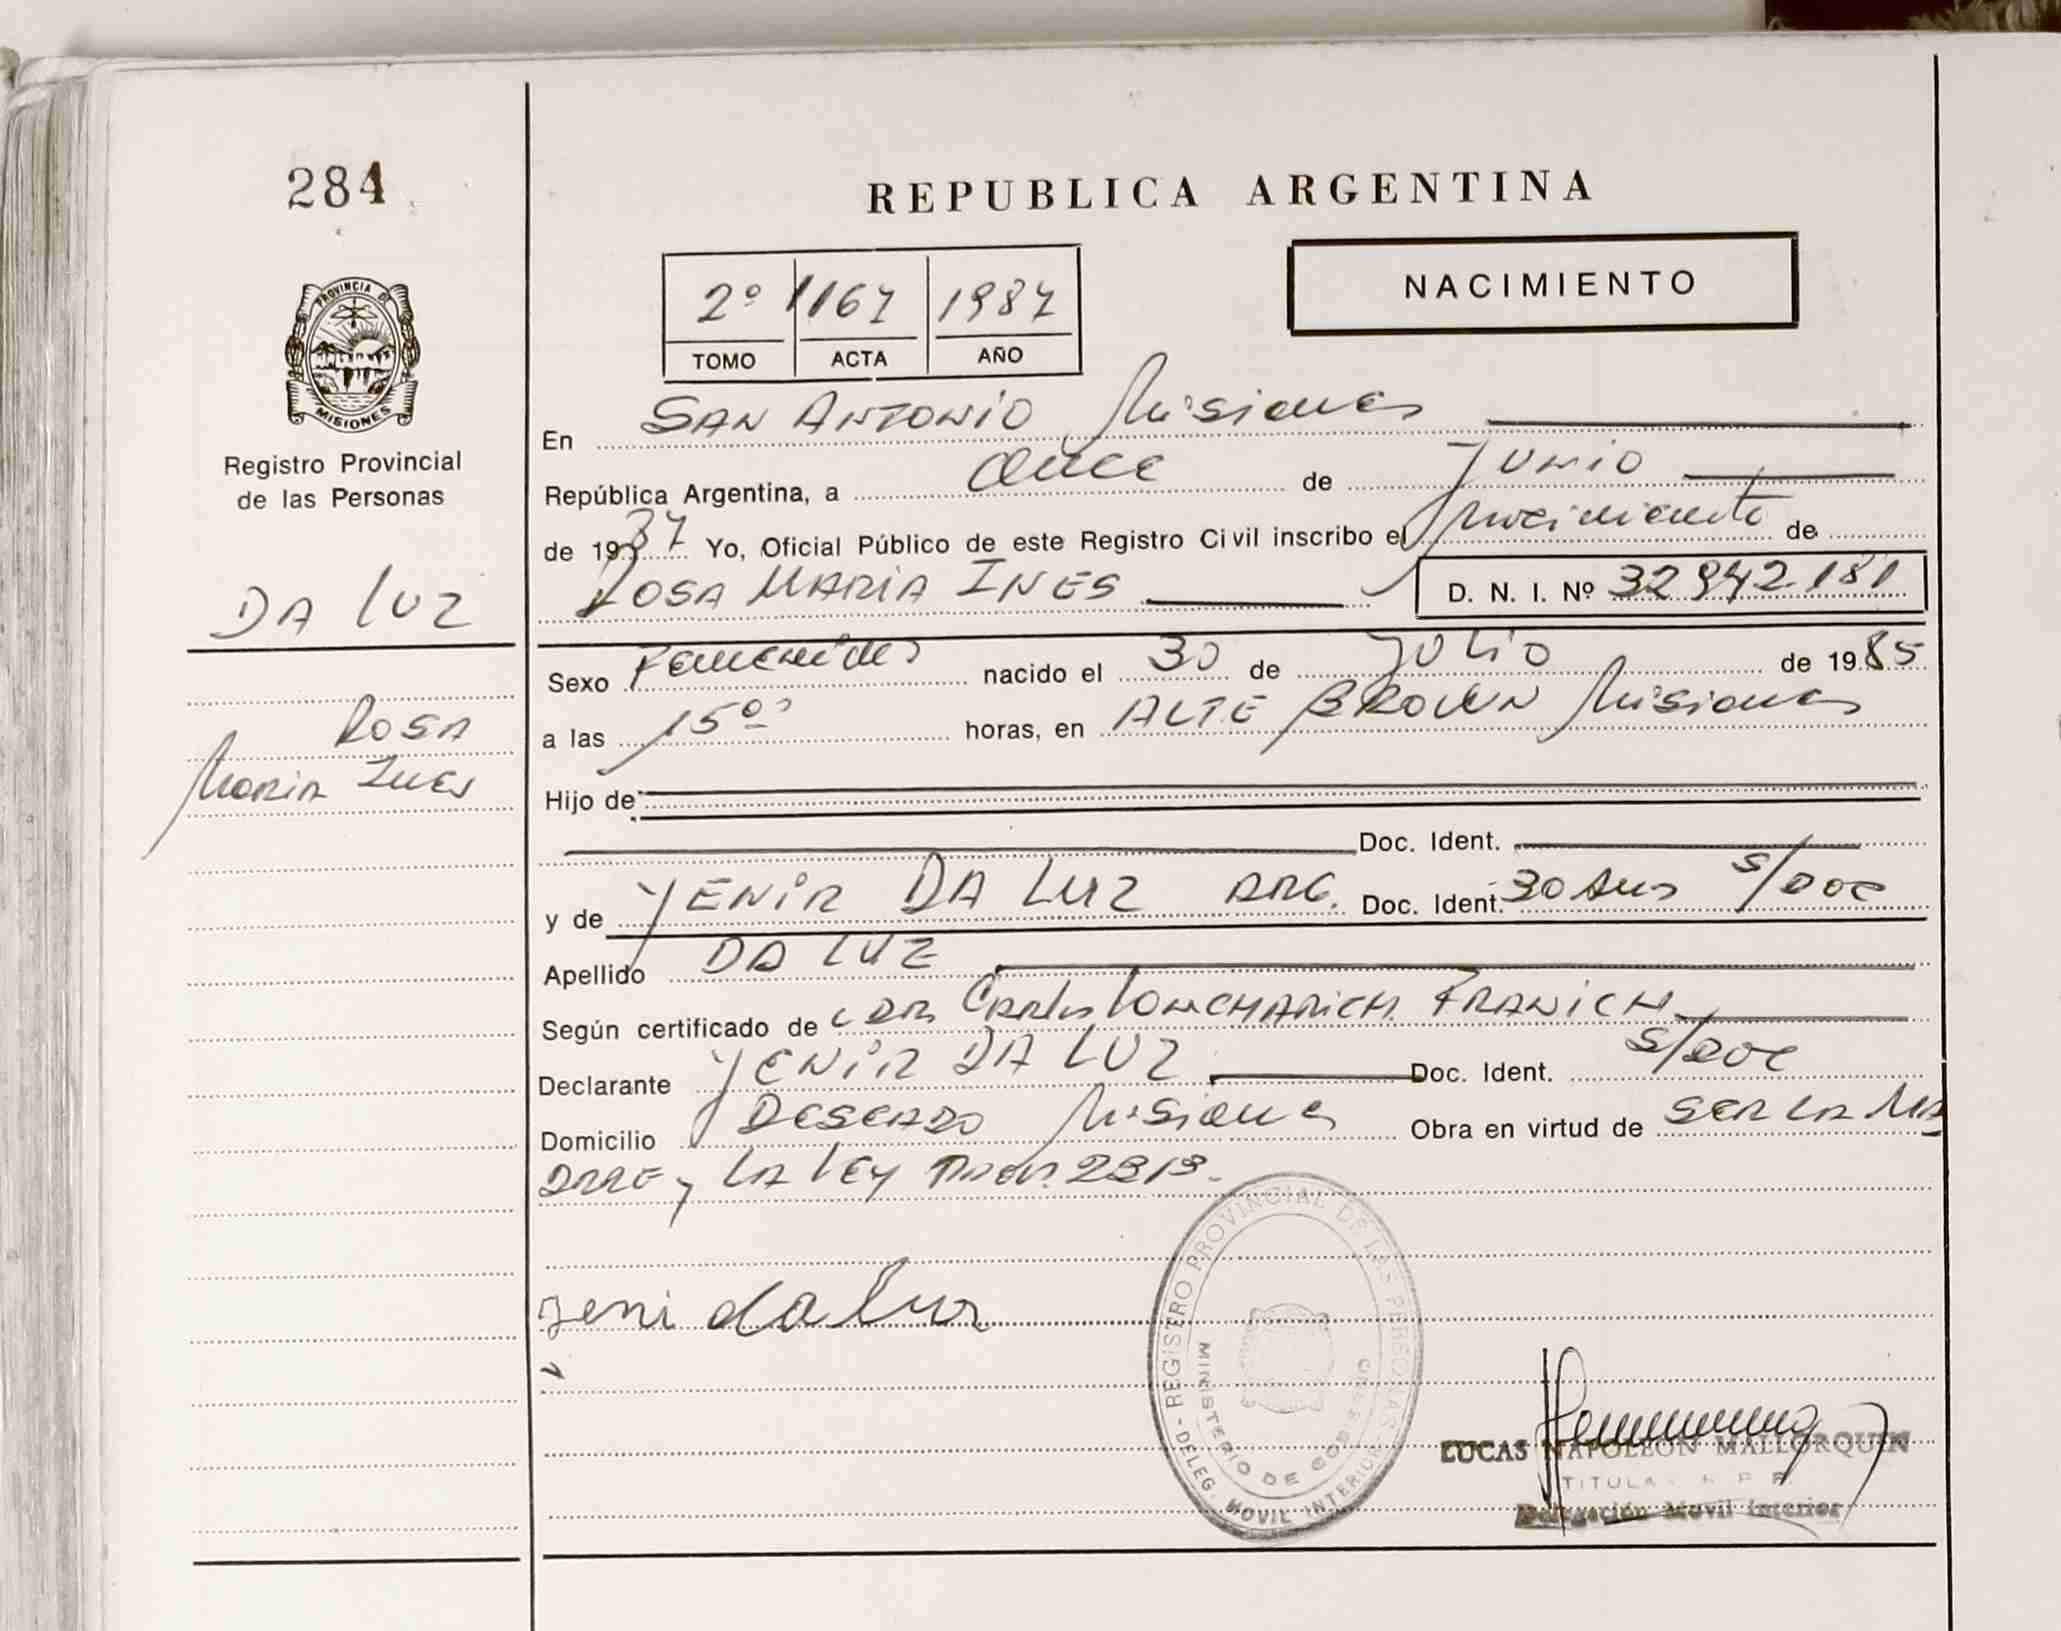 284
REPUBLICA ARGENTINA
NACIMIENTO
2º 1167 1987
TOMO ACTA AÑO
PROVINCIA DE
MISIONES
Registro Provincial
de las Personas
En SAN ANTONIO Misiones
República Argentina, a once de JUNIO
de 1987 Yo, Oficial Público de este Registro Civil inscribo el Nacimiento de
ROSA MARIA INES D. N. I. Nº 32942181
DA LUZ
Sexo Femenino nacido el 30 de JULIO de 1985
a las 15ºº horas, en ALTE BROWN Misiones
ROSA
Maria Ines
Hijo de
Doc. Ident.
y de YENIR DA LUZ ARG. Doc. Ident. 30 Años s/doc
Apellido DA LUZ
Según certificado de Carlos FRANICH
Declarante YENIR DA LUZ Doc. Ident. s/doc
Domicilio DESEADO Misiones Obra en virtud de SER LA MA
DRE y LA LEY
yeni da luz
REGISTRO PROVINCIAL DE LAS PERSONAS - DELEG. MOVIL INTERIOR
MINISTERIO DE GOBIERNO
LUCAS NAPOLEON MALLORQUIN
TITULAR R P P
Delegación Movil Interior